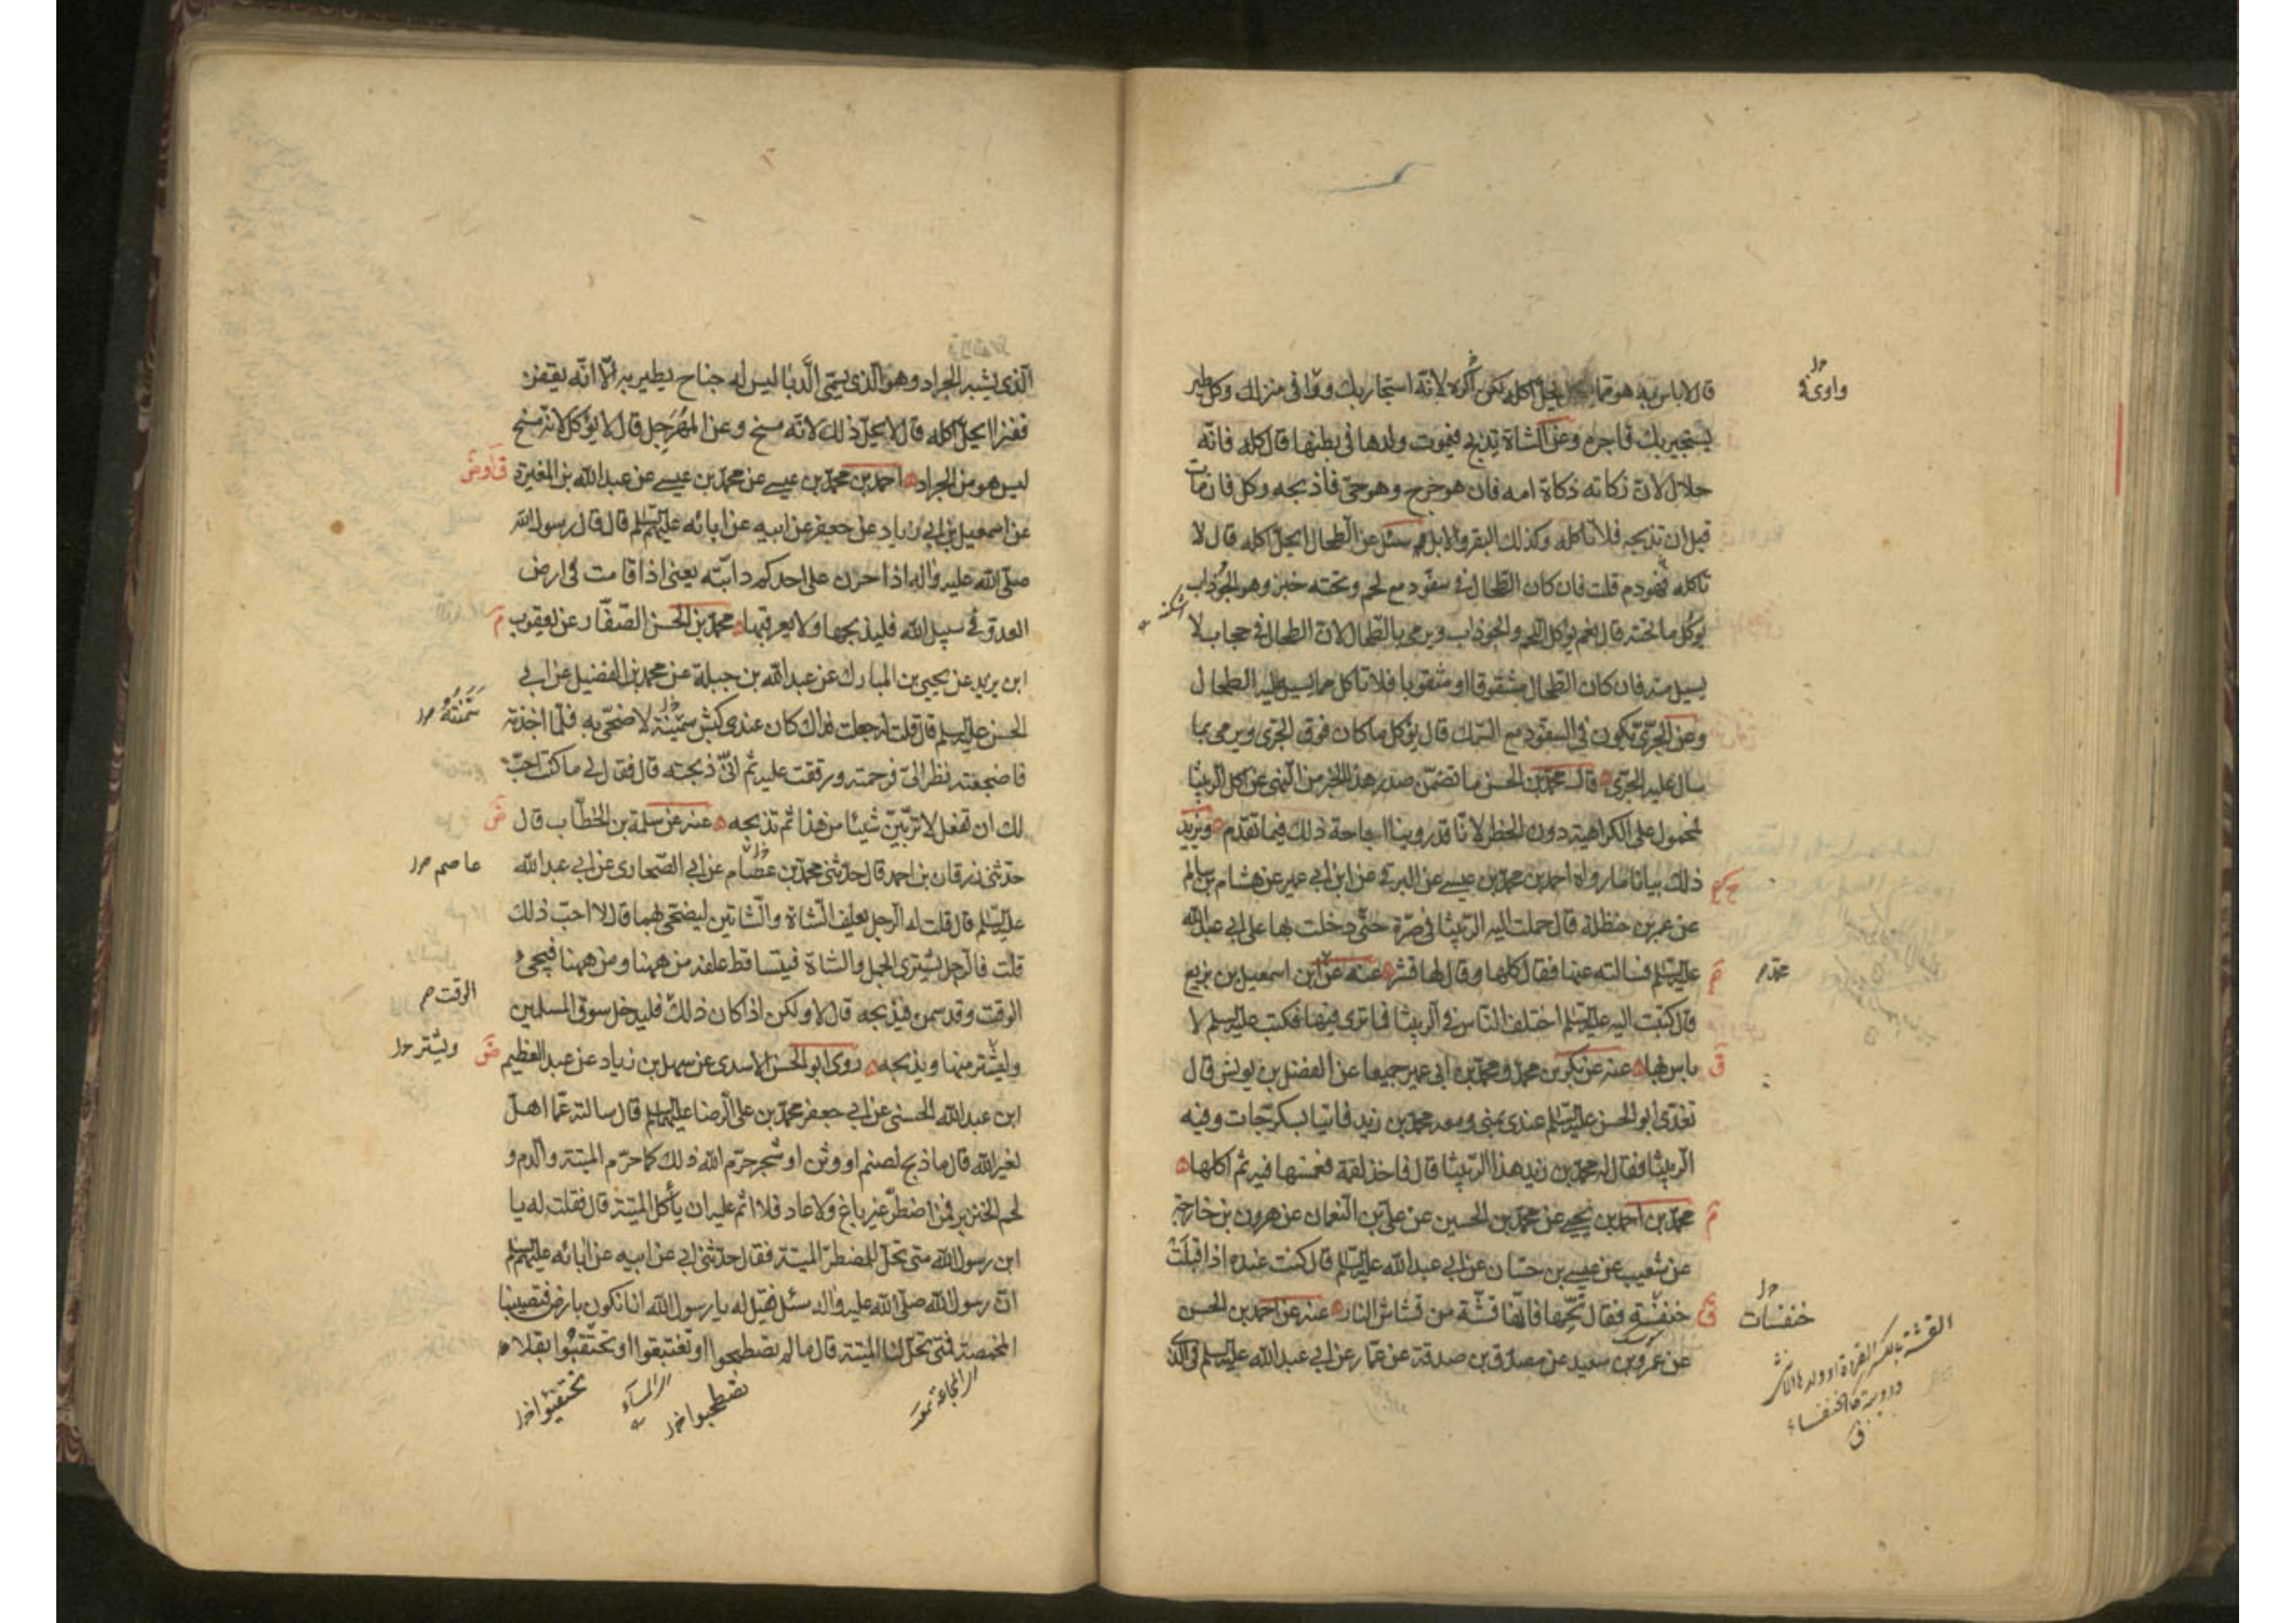 قال لا باس به هو مما يحل اكله لكن اكره لانه استجار بك ووافى منزلك وكل طير
يستجير بك فاجره وعن الشاة تذبح فيموت ولدها في بطنها قال كله فانه
حلال لان ذكاته ذكاة امه فان هو خرج وهو حي فاذبحه وكل فان مات
قبل ان تذبحه فلا تاكله وكذلك البقر والابل سئل عن الطحال ايحل اكله قال لا
تاكله فهو دم قلت فان كان الطحال في سفود مع لحم وتحته خبز وهو الجوذاب
يؤكل ما تحته قال نعم يؤكل اللحم والجوذاب ويرمى بالطحال لان الطحال في حجاب لا
يسيل منه فان كان الطحال مشقوقا او مثقوبا فلا تاكل مما يسيل عليه الطحال
وعن الجرّى يكون في السفود مع السمك قال يؤكل ما كان فوق الجرى ويرمى بما
سال عليه الجرى قال محمد بن الحسن ما تضمن صدر هذا الخبر من النهى عن اكل الربيثا
محمول على الكراهية دون الحظر لانا قد روينا اباحة ذلك فيما تقدم ويزيد
ذلك بيانا ما رواه احمد بن محمد بن عيسى عن البرقي عن ابن ابي عمير عن هشام بن سالم
عن عمر بن حنظلة قال حملت اليه الربيثا في صرة حتى دخلت بها على ابي عبد الله
عليه السلم فسالته عنها فقال كلها وقال لها قشر عنه عن ابن اسمعيل بن بزيع
قال كتبت اليه عليه السلم اختلف الناس في الربيثا فما ترى فيها فكتب عليه السلم لا
باس بها عنه عن بكر بن محمد ومحمد بن ابي عمير جميعا عن الفضل بن يونس قال
تغدى ابو الحسن عليه السلم عندى بمنى ومعه محمد بن زيد فاتيا بسكرجات وفيه
الربيثا فقال له محمد بن زيد هذا الربيثا قال فاخذ لقمة فغمسها فيه ثم اكلها
محمد بن احمد بن يحيى عن محمد بن الحسين عن علي بن النعمان عن هرون بن خارجة
عن شعيب عن عيسى بن حسان عن ابي عبد الله عليه السلم قال كنت عنده اذ اقبلت
خنفسة فقال نحّها فانها قشة من قشاش النار عنه عن احمد بن الحسن
عن عمرو بن سعيد عن مصدق بن صدقة عن عمار عن ابي عبد الله عليه السلم في الذى
واوى في
محمد
خنفسات
القشة بالكسر القردة او ولدها الانثى
ودويبة كالخنفساء
ق
الذى يشبه الجراد وهو الذى يسمى الدبا ليس له جناح يطير به الا انه يقفز
قفزا ايحل اكله قال لا يحل ذلك لانه مسخ وعن المهرجل قال لا يؤكل لانه مسخ
ليس هو من الجراد احمد بن محمد بن عيسى عن محمد بن عيسى عن عبد الله بن المغيرة
عن اسمعيل بن ابي زياد عن جعفر عن ابيه عن ابائه عليهم السلم قال قال رسول الله
صلى الله عليه واله اذا حرن على احدكم دابته يعنى اذا قامت في ارض
العدو في سبيل الله فليذبحها ولا يعرقبها محمد بن الحسن الصفار عن يعقوب
ابن يزيد عن يحيى بن المبارك عن عبد الله بن جبلة عن محمد بن الفضيل عن ابي
الحسن عليه السلم قال قلت جعلت فداك كان عندى كبش سمينة لاضحى به فلما اخذته
فاضجعته نظر الىّ فرحمته ورققت عليه ثم انى ذبحته قال فقال لي ما كنت احب
لك ان تفعل لا تربين شيئا من هذا ثم تذبحه عنه عن سلمة بن الخطاب قال
حدثنى زرقان بن احمد قال حدثنى محمد بن عصام عن ابي الصحارى عن ابي عبد الله
عليه السلم قال قلت له الرجل يعلف الشاة والشاتين ليضحى بهما قال لا احب ذلك
قلت فالرجل يشترى الجمل والشاة فيتساقط علفه من ههنا ومن ههنا فيجىء
الوقت وقد سمن فيذبحه قال لا ولكن اذا كان ذلك فليدخل سوق المسلمين
وليشتر منها ويذبحه روى ابو الحسن الاسدى عن سهل بن زياد عن عبد العظيم
ابن عبد الله الحسنى عن ابي جعفر محمد بن على الرضا عليهما السلم قال سالته عما اهل
لغير الله قال ما ذبح لصنم او وثن او شجر حرم الله ذلك كما حرم الميتة والدم و
لحم الخنزير فمن اضطر غير باغ ولا عاد فلا اثم عليه ان يأكل الميتة قال فقلت له يا
ابن رسول الله متى تحل للمضطر الميتة فقال حدثنى ابي عن ابيه عن ابائه عليهم السلم
ان رسول الله صلى الله عليه واله سئل فقيل له يا رسول الله انا نكون بارض فتصيبنا
المخمصة فمتى تحل لنا الميتة قال ما لم تصطبحوا او تغتبقوا او تحتقبوا بقلا
سمنته
عاصم
الوقت
ويشتر
اى المجاعة
تصطحبوا
تحتفيوا